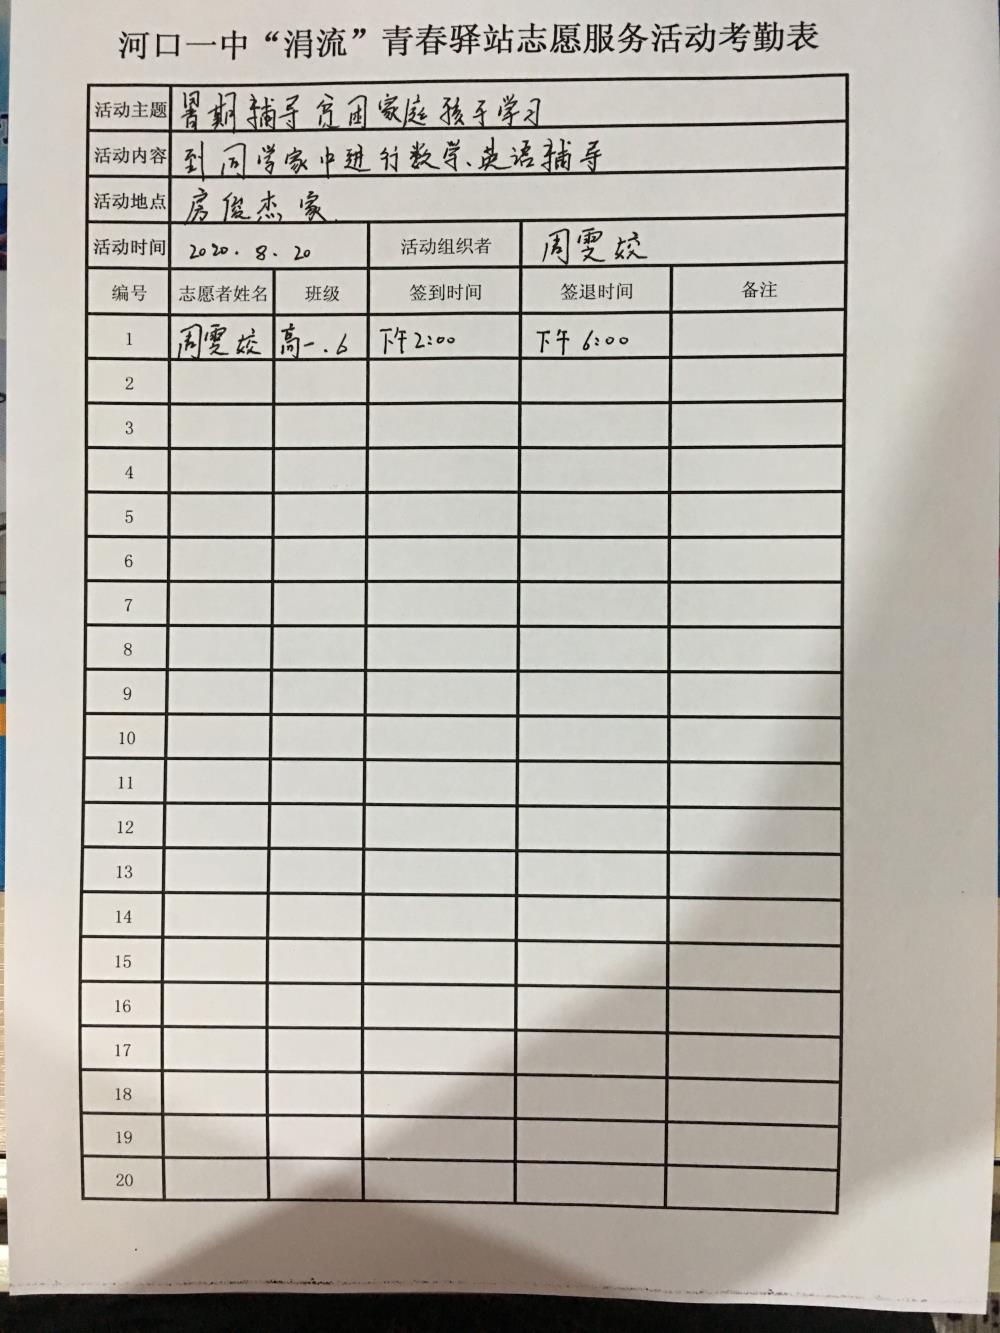 河口一中“涓流”青春驿站志愿服务活动考勤表
活动主题 暑期辅导贫困家庭孩子学习
活动内容 到同学家中进行数学、英语辅导
活动地点 房俊杰家.
活动时间 2020.8.20 活动组织者 周雯姣
编号 志愿者姓名 班级 签到时间 签退时间 备注
1 周雯姣 高一.6 下午2:00 下午6:00
2
3
4
5
6
7
8
9
10
11
12
13
14
15
16
17
18
19
20